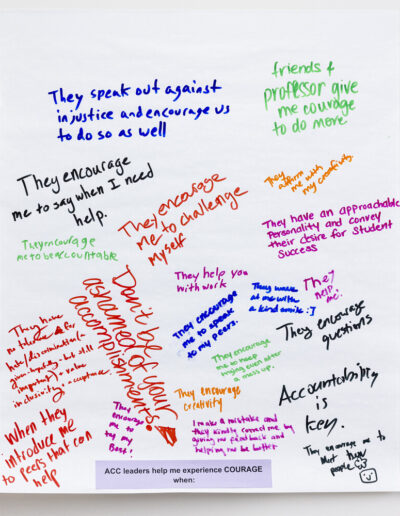 They speak out against
injustice and encourage us
to do so as well
friends &
professor give
me courage
to do more.
They encourage
me to say when I need
help.
They encourage
me to challenge
myself
They
affirm me with
my creativity.
They encourage
me to be accountable
They have an approachable
Personality and convey
their desire for Student
Success
They help you
with work
They
help me!
They
at me with
a kind smile :]
They encourage
me to speak
to my peers.
They encourage
questions
Don't be
ashamed of your
accomplishments!
They have
no tolerance for
hate/discrimination
given
value
inclusivity + acceptance.
They encourage
me to keep
trying even after
a mess up.
They encourage
creativity
Accountability
is
key.
They
encourage
me to
try my
Best!
I make a mistake and
they kindly correct me by
giving me feedback and
helping me be better
When they
introduce me
to ppls that can
help
They encourage me to
people
ACC leaders help me experience COURAGE
when: